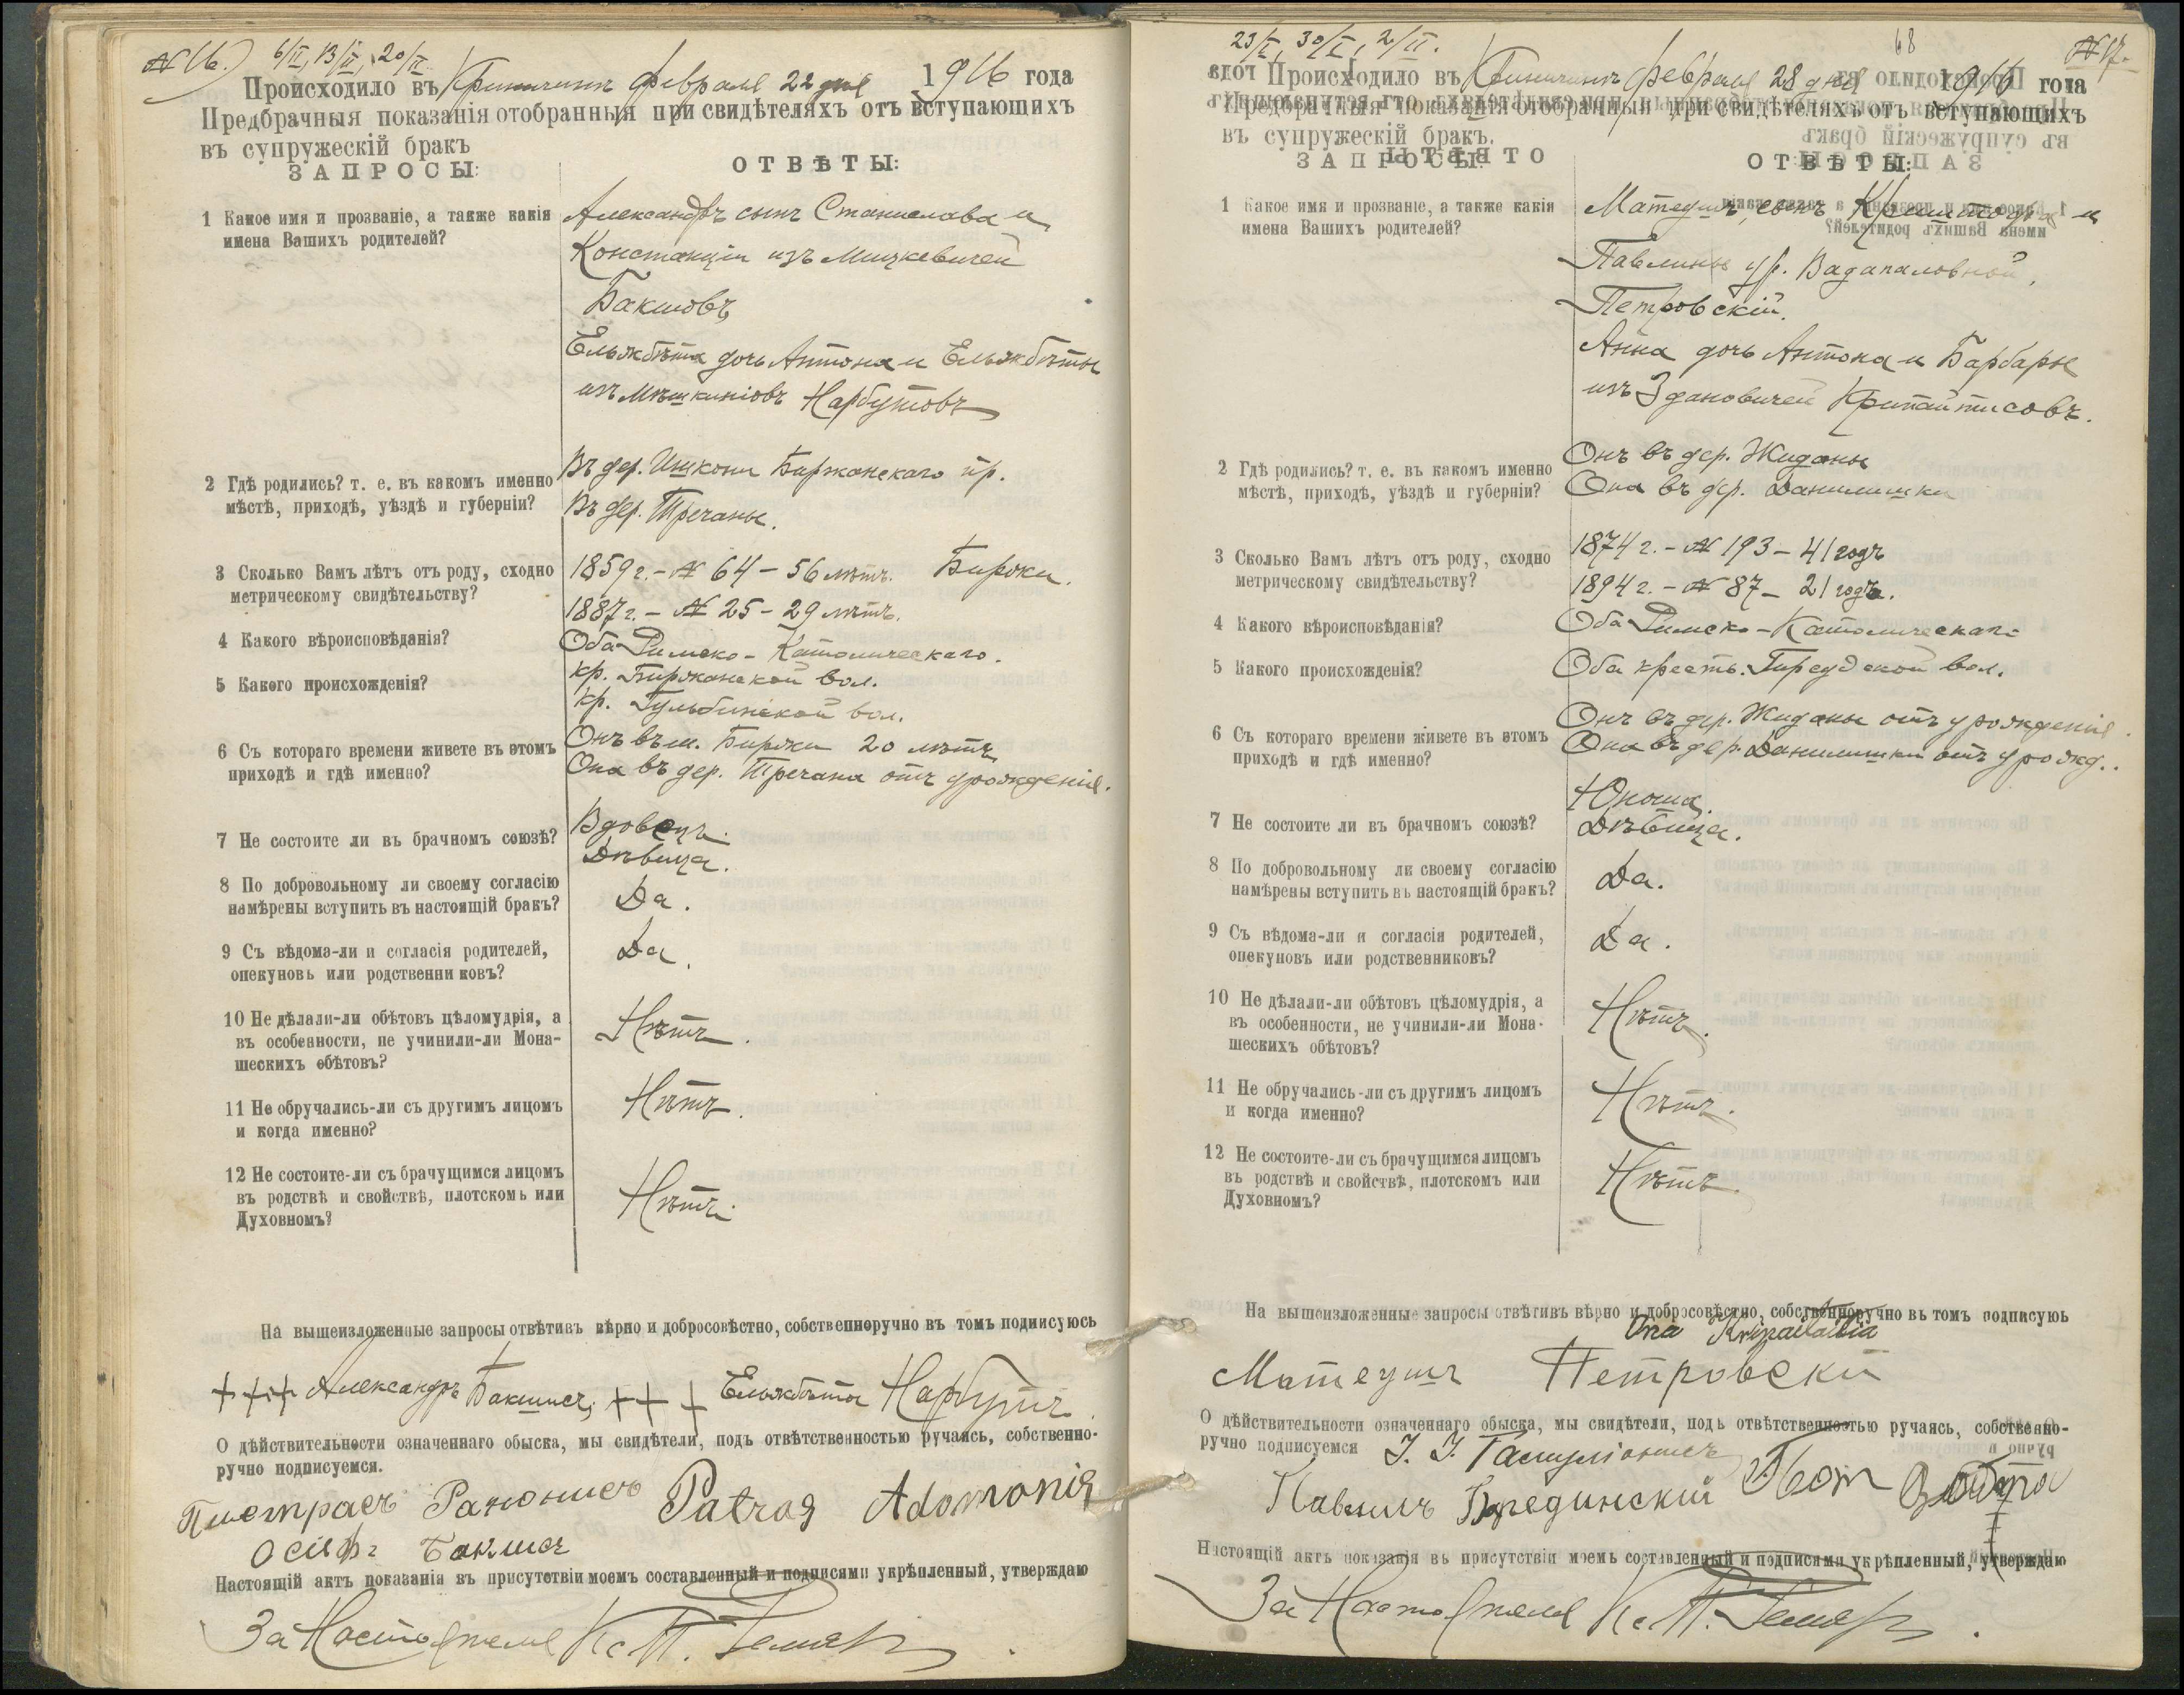 № 16. 6/II, 13/II, 20/II
Происходило въ февраля 22 дня 1916 года
Предбрачныя показанія отобранныя при свидѣтеляхъ отъ вступающихъ
въ супружескій бракъ
ЗАПРОСЫ: ОТВѢТЫ:
1 Какое имя и прозваніе, а также какія
имена Вашихъ родителей?
Александръ сынъ Станислава и
Констанціи изъ Мицкевичей
Бакшовъ
Ельжбѣта дочь Антона и Ельжбѣты
изъ Мѣшкиніовъ Нарбутовъ
2 Гдѣ родились? т. е. въ какомъ именно
мѣстѣ, приходѣ, уѣздѣ и губерніи?
Въ дер. Ишкони Биржанскаго пр.
Въ дер. Тречаны.
3 Сколько Вамъ лѣтъ отъ роду, сходно
метрическому свидѣтельству?
1859 г. - № 64 - 56 лѣтъ. Биржи.
1887 г. - № 25 - 29 лѣтъ.
4 Какого вѣроисповѣданія?
Оба Римско-Католическаго.
5 Какого происхожденія?
кр. Биржанской вол.
кр. Гульбинской вол.
6 Съ котораго времени живете въ этомъ
приходѣ и гдѣ именно?
Онъ въ м. Биржи 20 лѣтъ
Она въ дер. Тречаны отъ урожденія.
7 Не состоите ли въ брачномъ союзѣ?
Вдовецъ.
Дѣвица.
8 По добровольному ли своему согласію
намѣрены вступить въ настоящій бракъ?
Да.
9 Съ вѣдома-ли и согласія родителей,
опекуновъ или родственниковъ?
Да.
10 Не дѣлали-ли обѣтовъ цѣломудрія, а
въ особенности, не учинили-ли Мона-
шескихъ обѣтовъ?
Нѣтъ.
11 Не обручались-ли съ другимъ лицомъ
и когда именно?
Нѣтъ.
12 Не состоите-ли съ брачущимся лицомъ
въ родствѣ и свойствѣ, плотскомъ или
Духовномъ?
Нѣтъ.
На вышеизложенные запросы отвѣтивъ вѣрно и добросовѣстно, собственноручно въ томъ подписуюсь
+++ Александръ Бакшисъ, +++ Ельжбѣта Нарбутъ.
О дѣйствительности означеннаго обыска, мы свидѣтели, подъ отвѣтственностью ручаясь, собственно-
ручно подписуемся.
Петрасъ Patras Adomonis
Осифъ Бакшисъ
Настоящій актъ показанія въ присутствіи моемъ составленный и подписями укрѣпленный, утверждаю
За Настоятеля Кс. П.
23/I, 30/I, 2/II. 68 № 17.
Происходило въ февраля 28 дня 1916 года
Предбрачныя показанія отобранныя при свидѣтеляхъ отъ вступающихъ
въ супружескій бракъ.
ЗАПРОСЫ: ОТВѢТЫ:
1 Какое имя и прозваніе, а также какія
имена Вашихъ родителей?
Матеушъ, сынъ и
Павлины ур.
Петровскій.
Анна дочь Антона и Барбары
изъ Здановичей Крипайтисовъ.
2 Гдѣ родились? т. е. въ какомъ именно
мѣстѣ, приходѣ, уѣздѣ и губерніи?
Онъ въ дер. Жиданы
Она въ дер. Данилишки
3 Сколько Вамъ лѣтъ отъ роду, сходно
метрическому свидѣтельству?
1874 г. - № 193 - 41 годъ
1894 г. - № 87 - 21 годъ.
4 Какого вѣроисповѣданія?
Оба Римско-Католическаго
5 Какого происхожденія?
Оба кресть. вол.
6 Съ котораго времени живете въ этомъ
приходѣ и гдѣ именно?
Онъ въ дер. Жиданы отъ урожденія.
Она въ дер. Данилишки отъ урожд..
7 Не состоите ли въ брачномъ союзѣ?
Юноша.
Дѣвица.
8 По добровольному ли своему согласію
намѣрены вступить въ настоящій бракъ?
Да.
9 Съ вѣдома-ли и согласія родителей,
опекуновъ или родственниковъ?
Да.
10 Не дѣлали-ли обѣтовъ цѣломудрія, а
въ особенности, не учинили-ли Мона-
шескихъ обѣтовъ?
Нѣтъ.
11 Не обручались-ли съ другимъ лицомъ
и когда именно?
Нѣтъ.
12 Не состоите-ли съ брачущимся лицомъ
въ родствѣ и свойствѣ, плотскомъ или
Духовномъ?
Нѣтъ.
На вышеизложенные запросы отвѣтивъ вѣрно и добросовѣстно, собственноручно въ томъ подписуюь
Ona
Матеушъ Петровски
О дѣйствительности означеннаго обыска, мы свидѣтели, подъ отвѣтственностью ручаясь, собственно-
ручно подписуемся
Павлилъ
Настоящій актъ показанія въ присутствіи моемъ составленный и подписями укрѣпленный, утверждаю
За Настоятеля Кс. П.